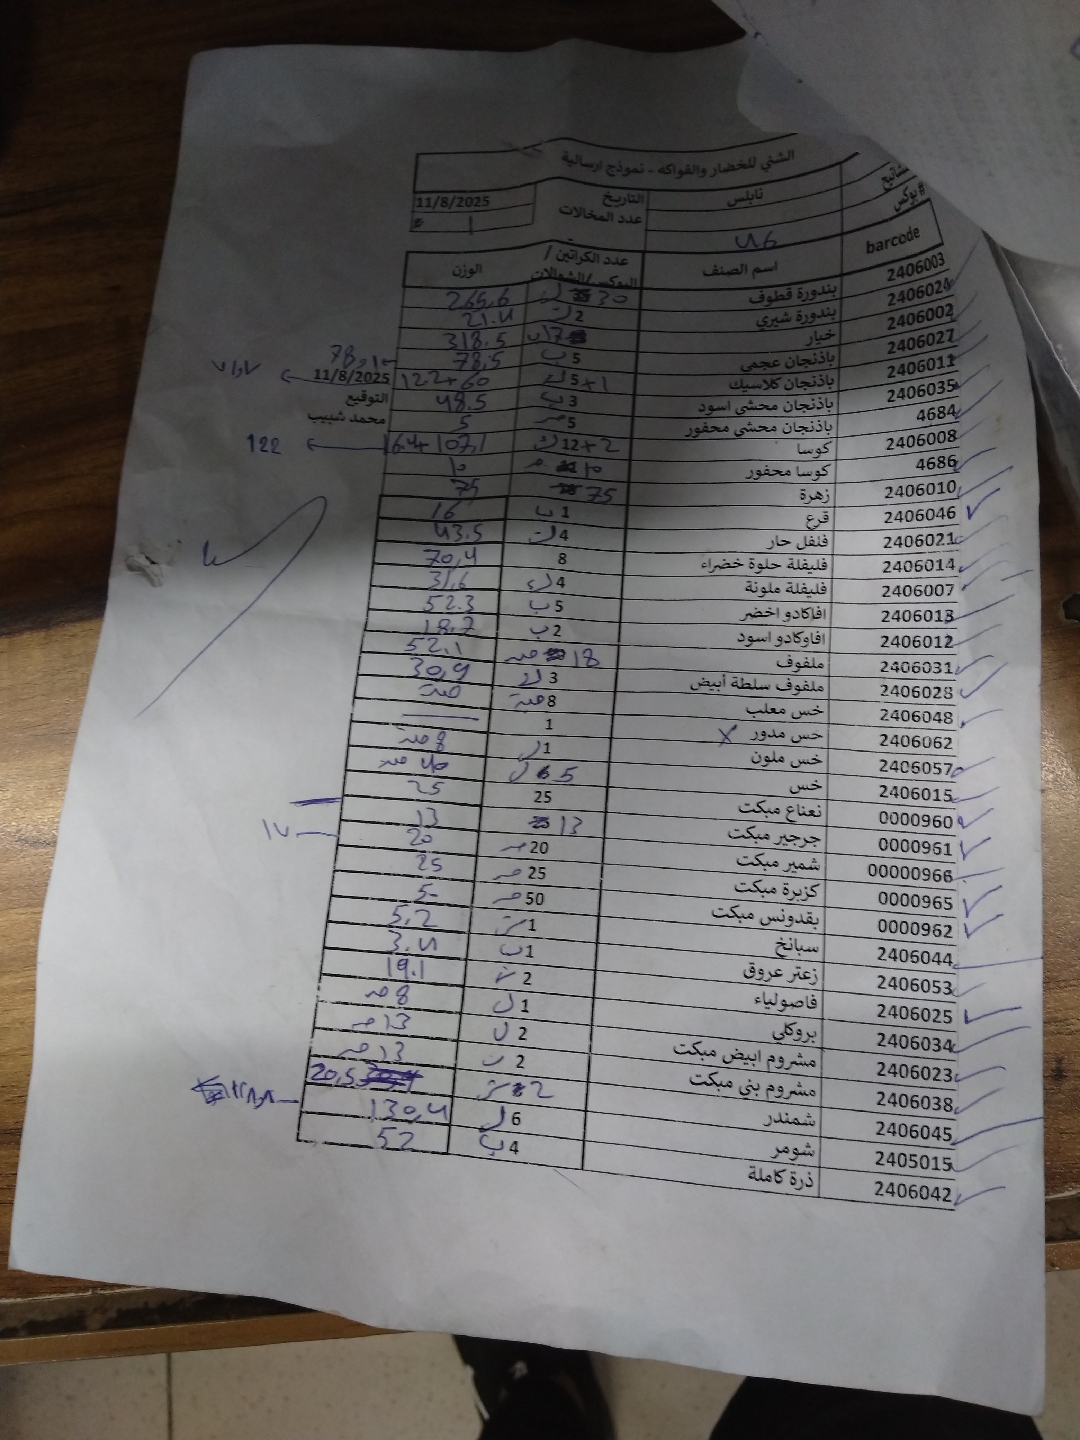 الشني للخضار والفواكه - نموذج ارسالية
نابلس التاريخ 11/8/2025
بوكس# عدد المخالات 1
barcode اسم الصنف عدد الكراتين / البوكس/الشوالات الوزن
2406003 بندورة قطوف 30 265.6
2406024 بندورة شيري 2 21.4
2406002 خيار 17 318.5
2406027 باذنجان عجمي 5 ب 78,5
2406011 باذنجان كلاسيك 5+1 122+60 11/8/2025
2406035 باذنجان محشي اسود 3 ب 48.5 التوقيع
4684 باذنجان محشي محفور 5 5 محمد شبيب
2406008 كوسا 12+2 16.4+107,1 122
4686 كوسا محفور 10 10
2406010 زهرة 75 75
2406046 قرع 1 ب 16
2406021 فلفل حار 4 43.5
2406014 فليفلة حلوة خضراء 8 70,4
2406007 فليفلة ملونة 4 31,6
2406013 افاكادو اخضر 5 ب 52.3
2406012 افاوكادو اسود 2 ب 18.2
2406031 ملفوف 18 52,1
2406028 ملفوف سلطة أبيض 3 30,9
2406048 خس معلب 8
2406062 خس مدور 1
2406057 خس ملون 1 8
2406015 خس 5 40
0000960 نعناع مبكت 25 25
0000961 جرجير مبكت 13 13
00000966 شمير مبكت 20 20
0000965 كزبرة مبكت 25 25
0000962 بقدونس مبكت 50
2406044 سبانخ 1 5,2
2406053 زعتر عروق 1 3.4
2406025 فاصولياء 2 19.1
2406034 بروكلي 1 8
2406023 مشروم ابيض مبكت 2 13
2406038 مشروم بني مبكت 2 13
2406045 شمندر 2 20,5
2405015 شومر 6 130,4
2406042 ذرة كاملة 4 52